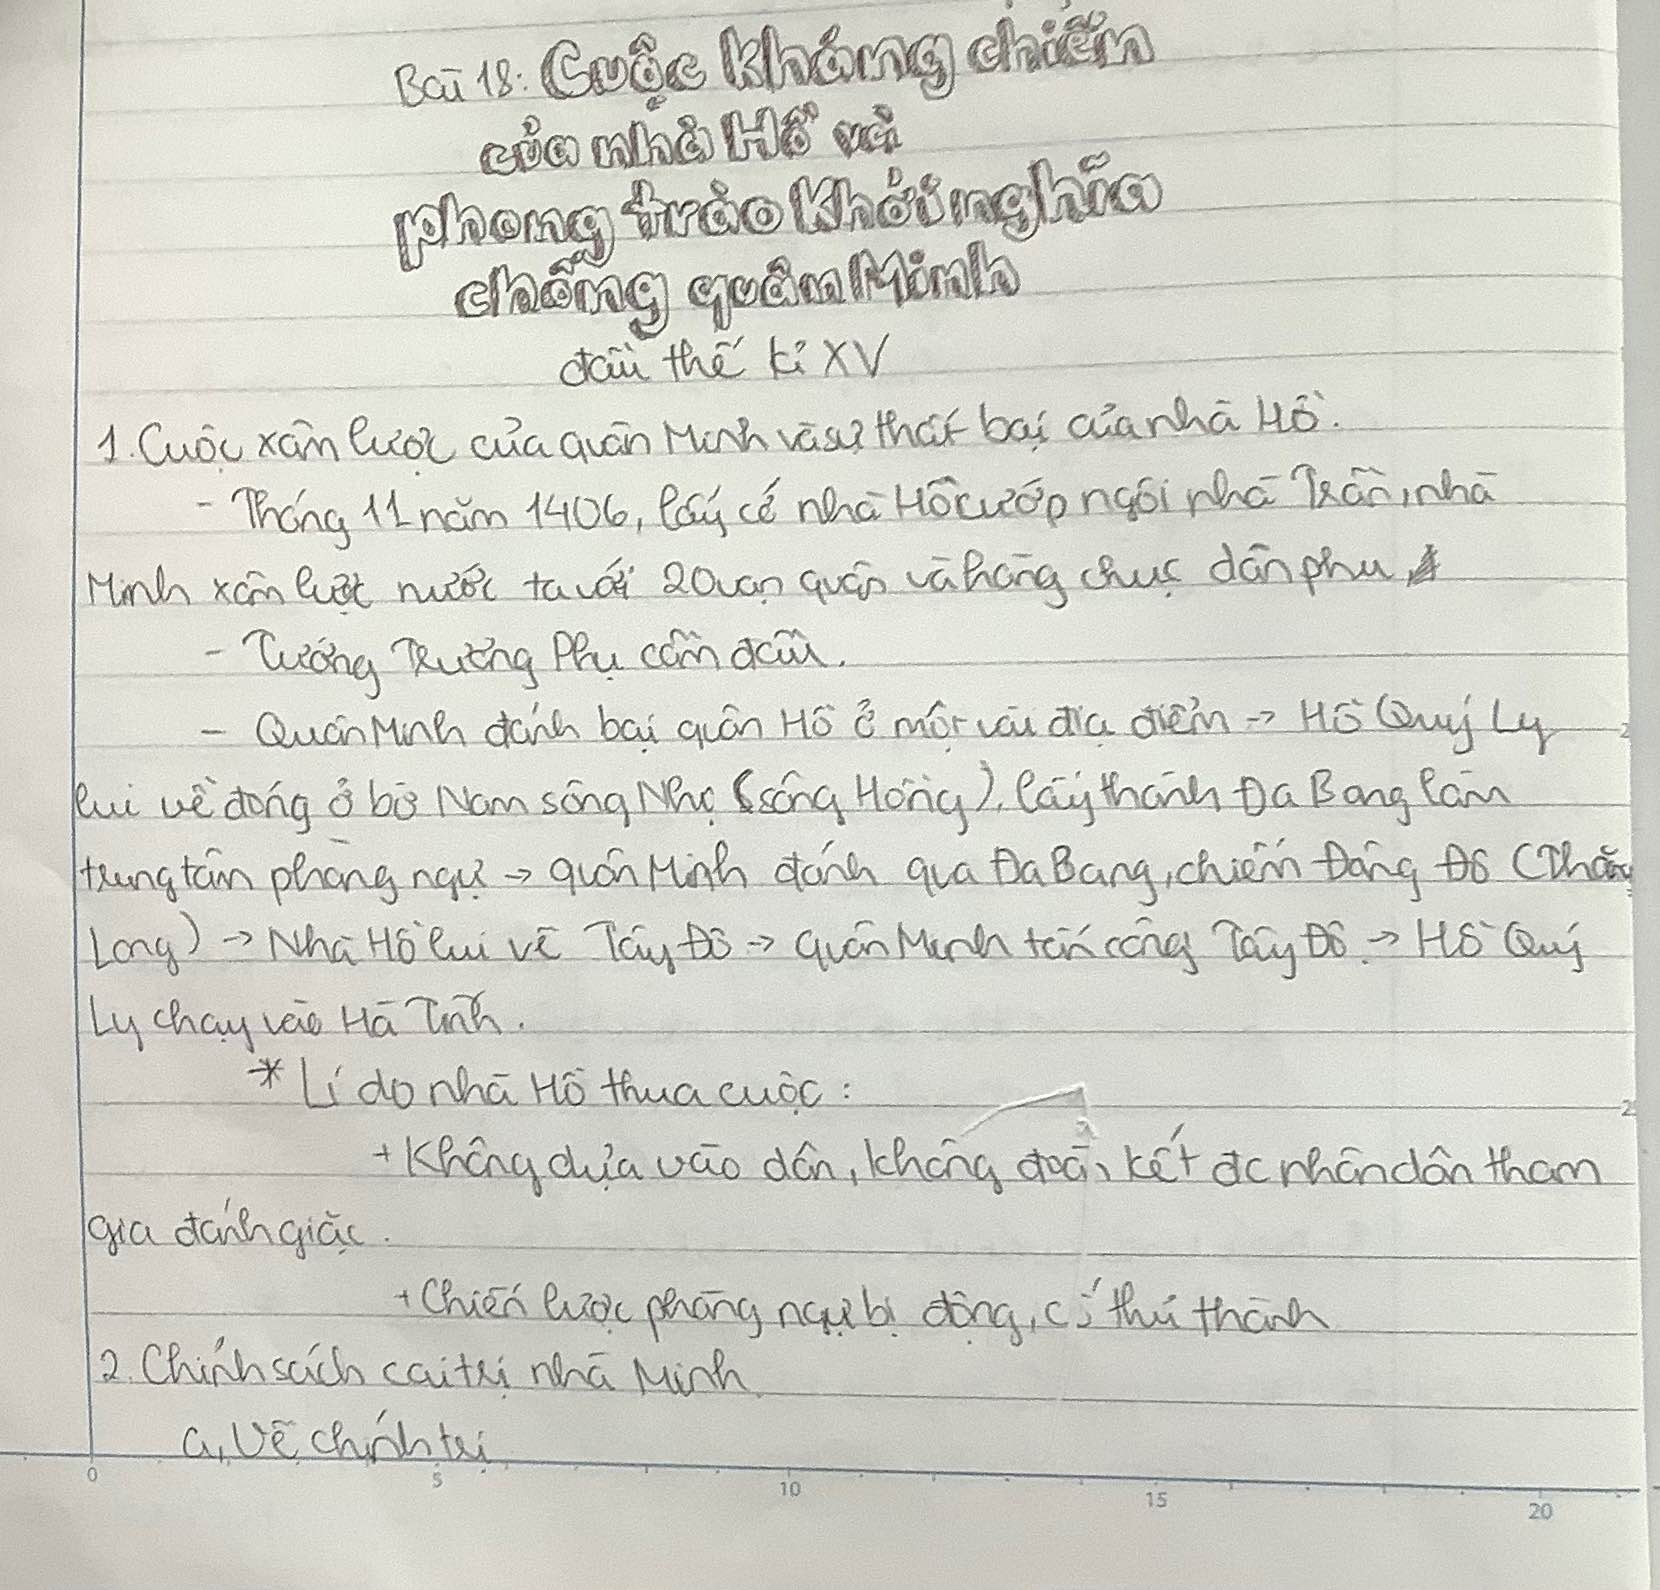 Bài 18: Cuộc kháng chiến
của nhà Hồ và
phong trào khởi nghĩa
chống quân Minh
đầu thế kỉ XV
1. Cuộc xâm lược của quân Minh và sự thất bại của nhà Hồ.
- Tháng 11 năm 1406, lấy cớ nhà Hồ cướp ngôi nhà Trần, nhà
Minh xâm lược nước ta với 20 vạn quân và hàng chục dân phu
- Tướng Trương Phụ cầm đầu.
- Quân Minh đánh bại quân Hồ ở một vài địa điểm → Hồ Quý Ly
lui về đóng ở bờ Nam sông Nhị (sông Hồng), lấy thành Đa Bang làm
trung tâm phòng ngự → quân Minh đánh qua Đa Bang, chiếm Đông Đô (Thăng
Long) → Nhà Hồ lui về Tây Đô → quân Minh tấn công Tây Đô → Hồ Quý
Ly chạy vào Hà Tĩnh.
* Lí do nhà Hồ thua cuộc:
+ Không dựa vào dân, không đoàn kết đc nhân dân tham
gia đánh giặc.
+ Chiến lược phòng ngự bị động, cố thủ thành
2. Chính sách cai trị nhà Minh
a, Về chính trị
0 5 10 15 20